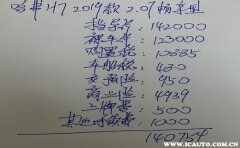 哈弗H7 2019款 2.0T
指导价：142000
裸车价：123000
购置税：10885
车船税：420
交强险：950
商业险：4939
上牌费：500
其他
：1000
140754
WWW.ICAUTO.COM.CN